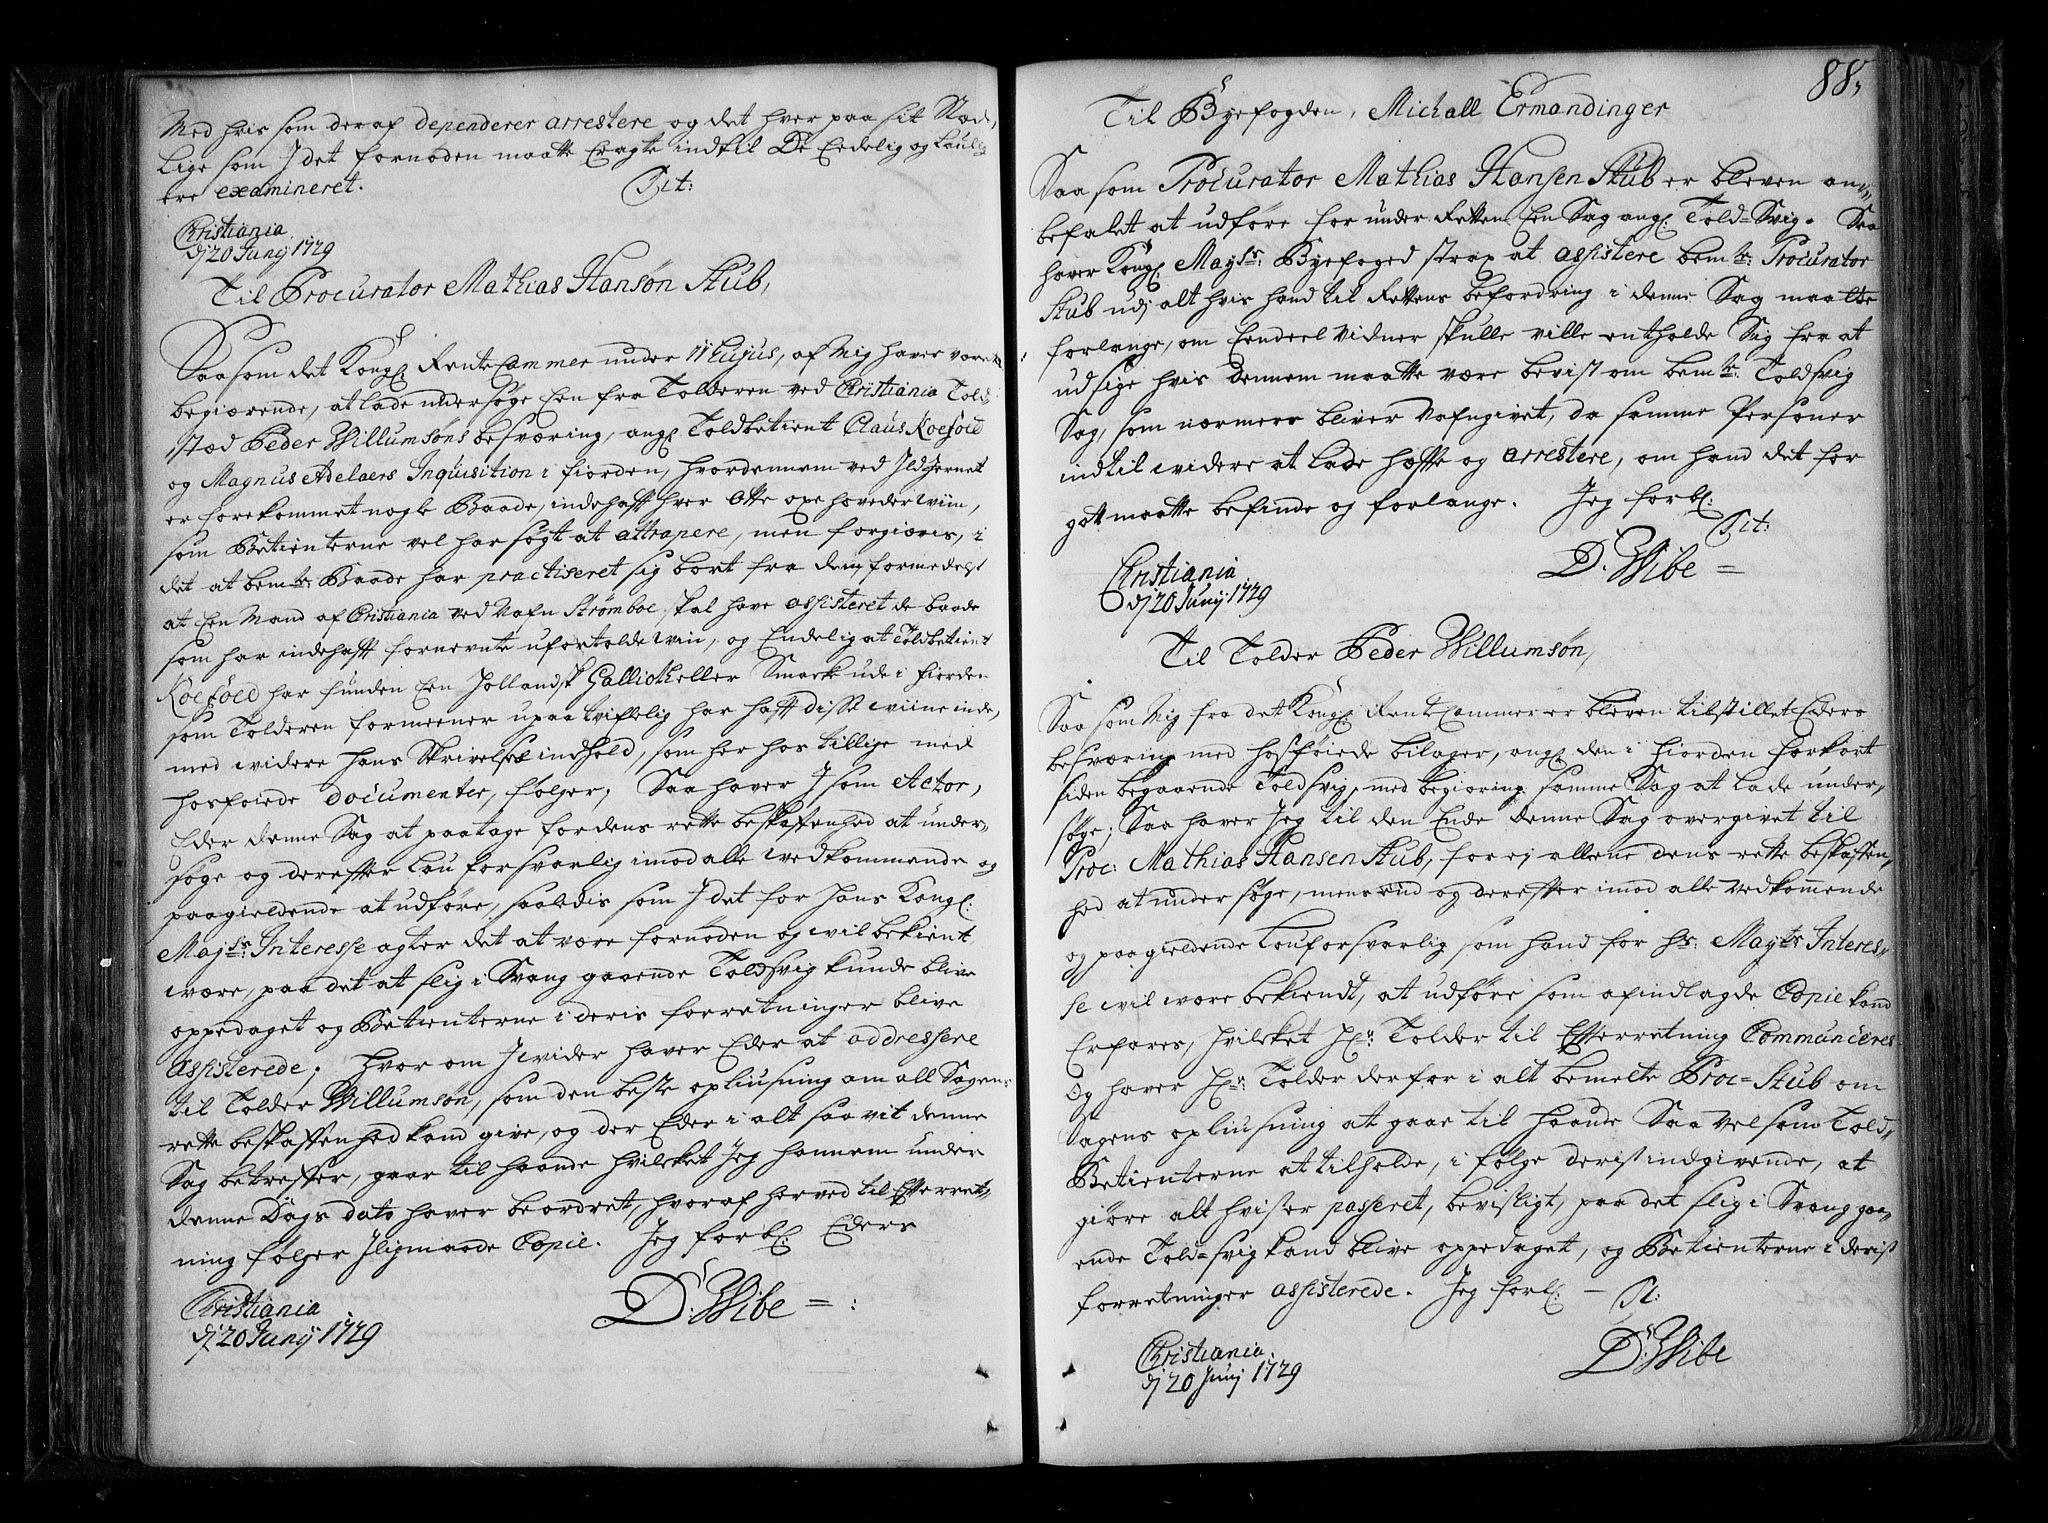 Med hvis som deraf dependerer arrestere og det hver paa sit Stæd,
Lige som I det fornøden maatte Eragte indtil De Eedelig og Laulig
ere examineret. Tit:
Christiania
dj 20 Junij 1729
Til Procurator Mathias Hansøn Stub,
Saasom det Kongl. Rente Cammer under 11 hujus, af Mig haver været
begiærende, at lade undersøge Een fra Tolderen ved Christiania Told-
stæd Peder Willumsøns besværing, angl. Toldbetient Claus Koefoed
og Magnus Adelaers Inquisition i fiorden, hvordennem ved Ildjernet
er forekommet nogle Baade, indehafft hver Otte oxehoveder wiin,
som Betienterne vel har søgt at attrapere, men forgiæves, i
det at bemte. Baade har practiseret sig bort fra dem, formedelst
at Een Mand af Christiania ved Nafn Strømboe, skal have assisteret de baade
som har indehafft fornevnte ufortolde wiin, og Endelig at Toldbetient
Koefoed har funden Een Hollandsk Galliotheller Smack ude i fiorden
som Tolderen formeener upaatvifflelig har hafft disse wiine inde,
med widere hans Skrivelsse indhold, som her hos tillige med
hosføiede documenter, følger; Saa haver I som Actor,
Eder denne Sag at paatage for dens rette beskaffenhed at under-
søge og derefter Lou forsvarlig imod alle wedkommende og
paagieldende at udføre, saaledis som I det for Hans Kongl:
Majts: Interesse agter det at være fornøden og wil bekient
være, paa det at slig i Svang gaaende Toldsvig kunde blive
oppedaget og Betienterne i deris forretninger blive
assisterede; Hvor om I wider haver Eder at addressere
til Tolder Willumsøn, som den beste opliusning om all Sagens
rette beskaffenhed kand give, og der Eder i alt saavit denne
Sag betreffer, gaar til haande hvilcket Jeg hannem under
denne Dags dato haver beordret, hvoraf herved til Efterret-
ning følger Iligmaade Copie. Jeg forbl: Eders
D: Wibe
Christiania
dj 20 Junij 1729
88,
Til Byefogden, Michall Ermandinger
Saasom Procurator Mathias Hansen Stub er bleven an-
befalet at udføre for under Retten Een Sag angl. Told-Svig. Saa
haver Kongl. Mayts: Byefoged strax at assistere bemte: Procurator
Stub udj alt hvis hand til Rettens befordring i denne Sag maatte
forlange, om Eendeel vidner skulle ville entholde Sig fra at
udsige hvis dennem maatte være bevist om bemte: Toldsvig
Sag, som nærmere bliver Nafngivet, da samme Personer
indtil widere at lade hæffte og arrestere, om hand det for
gott maatte befinde og forlange. Jeg forbl:
Tit:
D. Wibe
Christiania
dj 20 Junij 1729
Til Tolder Peder Willumsøn,
Saasom Mig fra det Kongl. Rente Cammer er bleven tilstillet Eders
besværing med hosføiede bilager, angl. den i fiorden forkort
siden begaaende Toldsvig, med begiæring samme Sag at lade under-
søge; Saa haver Jeg til den Ende denne Sag overgivet til
Proc: Mathias Hansen Stub, for ej allene dens rette beskaffen-
hed at undersøge, mens end og derefter imod alle vedkommende
og paagieldende Louforsvarlig som hand for Hs: Mayts Interes-
se wil være bekiendt, at udføre som af indlagde Copie kand
Erfares, hvilcket Hr: Tolder til Efterretning Communiceres
Og haver Hr: Tolder derfor i alt bemelte Proc= Stub om
Sagens opliusning at gaae til haande Saavelsom Told-
Betienterne at tilholde, i følge derist indgivende, at
giøre alt hvis er passeret, bevisligt, paa det slig i Svang gaa-
ende Told-svig kand blive oppedaget, og Betienterne i derist
forretninger assisterede. Jeg forbl: – Tit:
D: Wibe
Christiania.
dj 20 Junij 1729